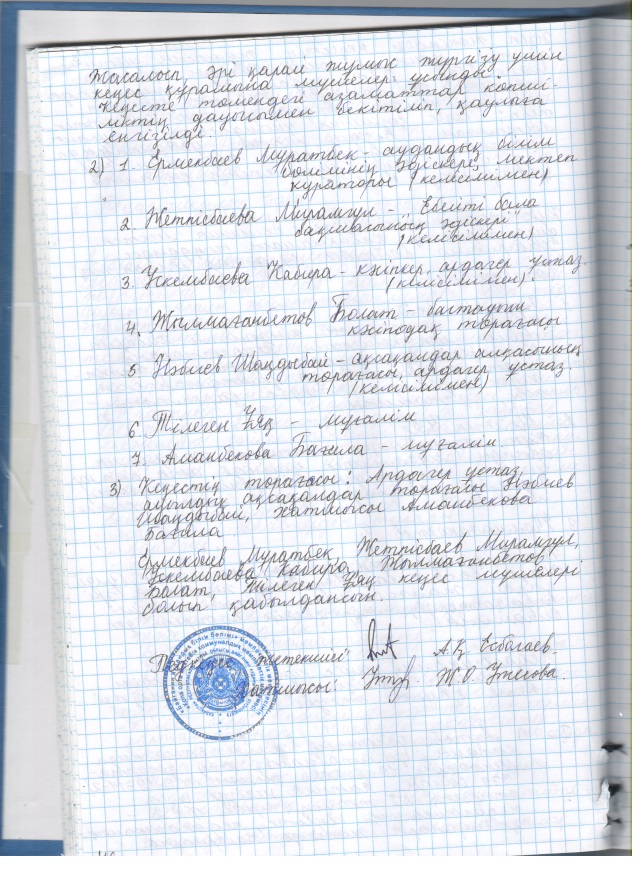 Жасалып, әрі қарай жұмыс жүргізу үшін
кеңес құрамына мүшелер ұсынды.
Кеңесте төмендегі азаматтар көпші-
ліктің дауысымен бекітіліп, қаулыға
енгізілді
2) 1. Ермекбаев Мұратбек - аудандық білім
бөлімінің әдіскері, мектеп
кураторы (келісілімен)
2. Жетпісбаева Мирамгүл -
бақшасының әдіскері"
(келісілімен)
3. Үскембаева Кабира - кәсіпкер, ардагер ұстаз.
(келісілімен).
4. Жылмағанбетов Болат - бастауыш
кәсіподақ төрағасы
5. Нәбиев Шаңдыбай - ақсақалдар алқасының
төрағасы, ардагер ұстаз
(келісілімен)
6. Тілеген - мұғалім
7. Аманбекова Бағила - мұғалім
3) Кеңестің төрағасы: Ардагер ұстаз,
ауылдық ақсақалдар төрағасы Нәбиев
Шаңдыбай, хатшысы Аманбекова
Бағила
Ермекбаев Мұратбек, Жетпісбаев Мирамгүл,
Үскембаева Кабира, Жылмағанбетов
Болат, Тілеген кеңес мүшелері
болып қабылдансын.
жетекшісі: А.Қ. Есболаев.
Хатшысы: Ж.О. Утесова.